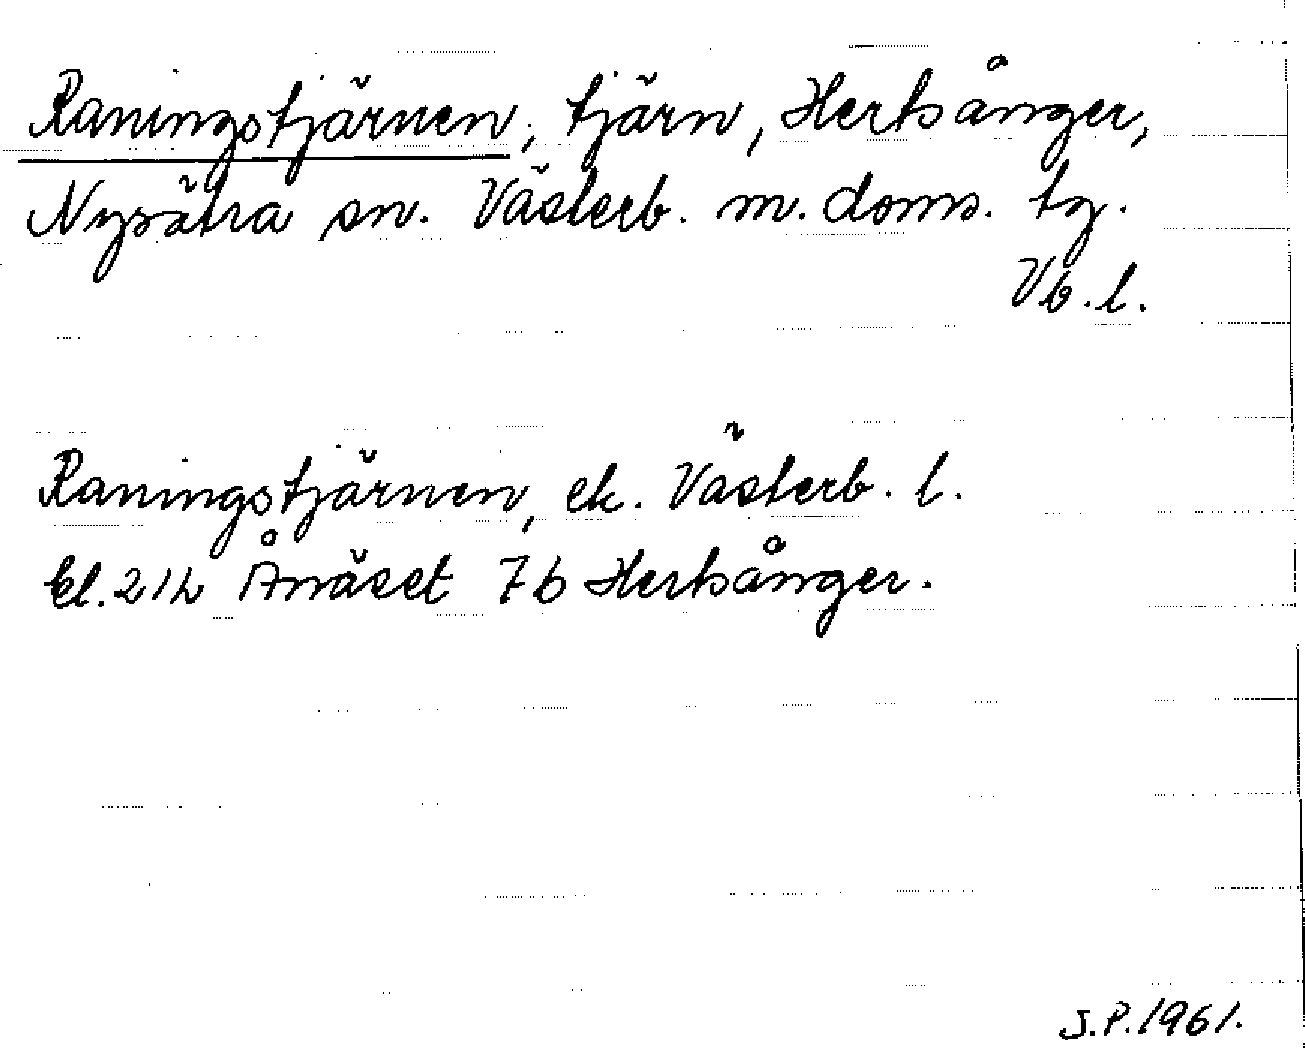 Raningstjärnen, tjärn, Hertsånger,
Nysätra sn. Västerb. m. doms. tg.
Vb. l.
Raningstjärnen, ek. Västerb. l.
bl. 21L Ånäset 7b Hertsånger.
J.P. 1961.